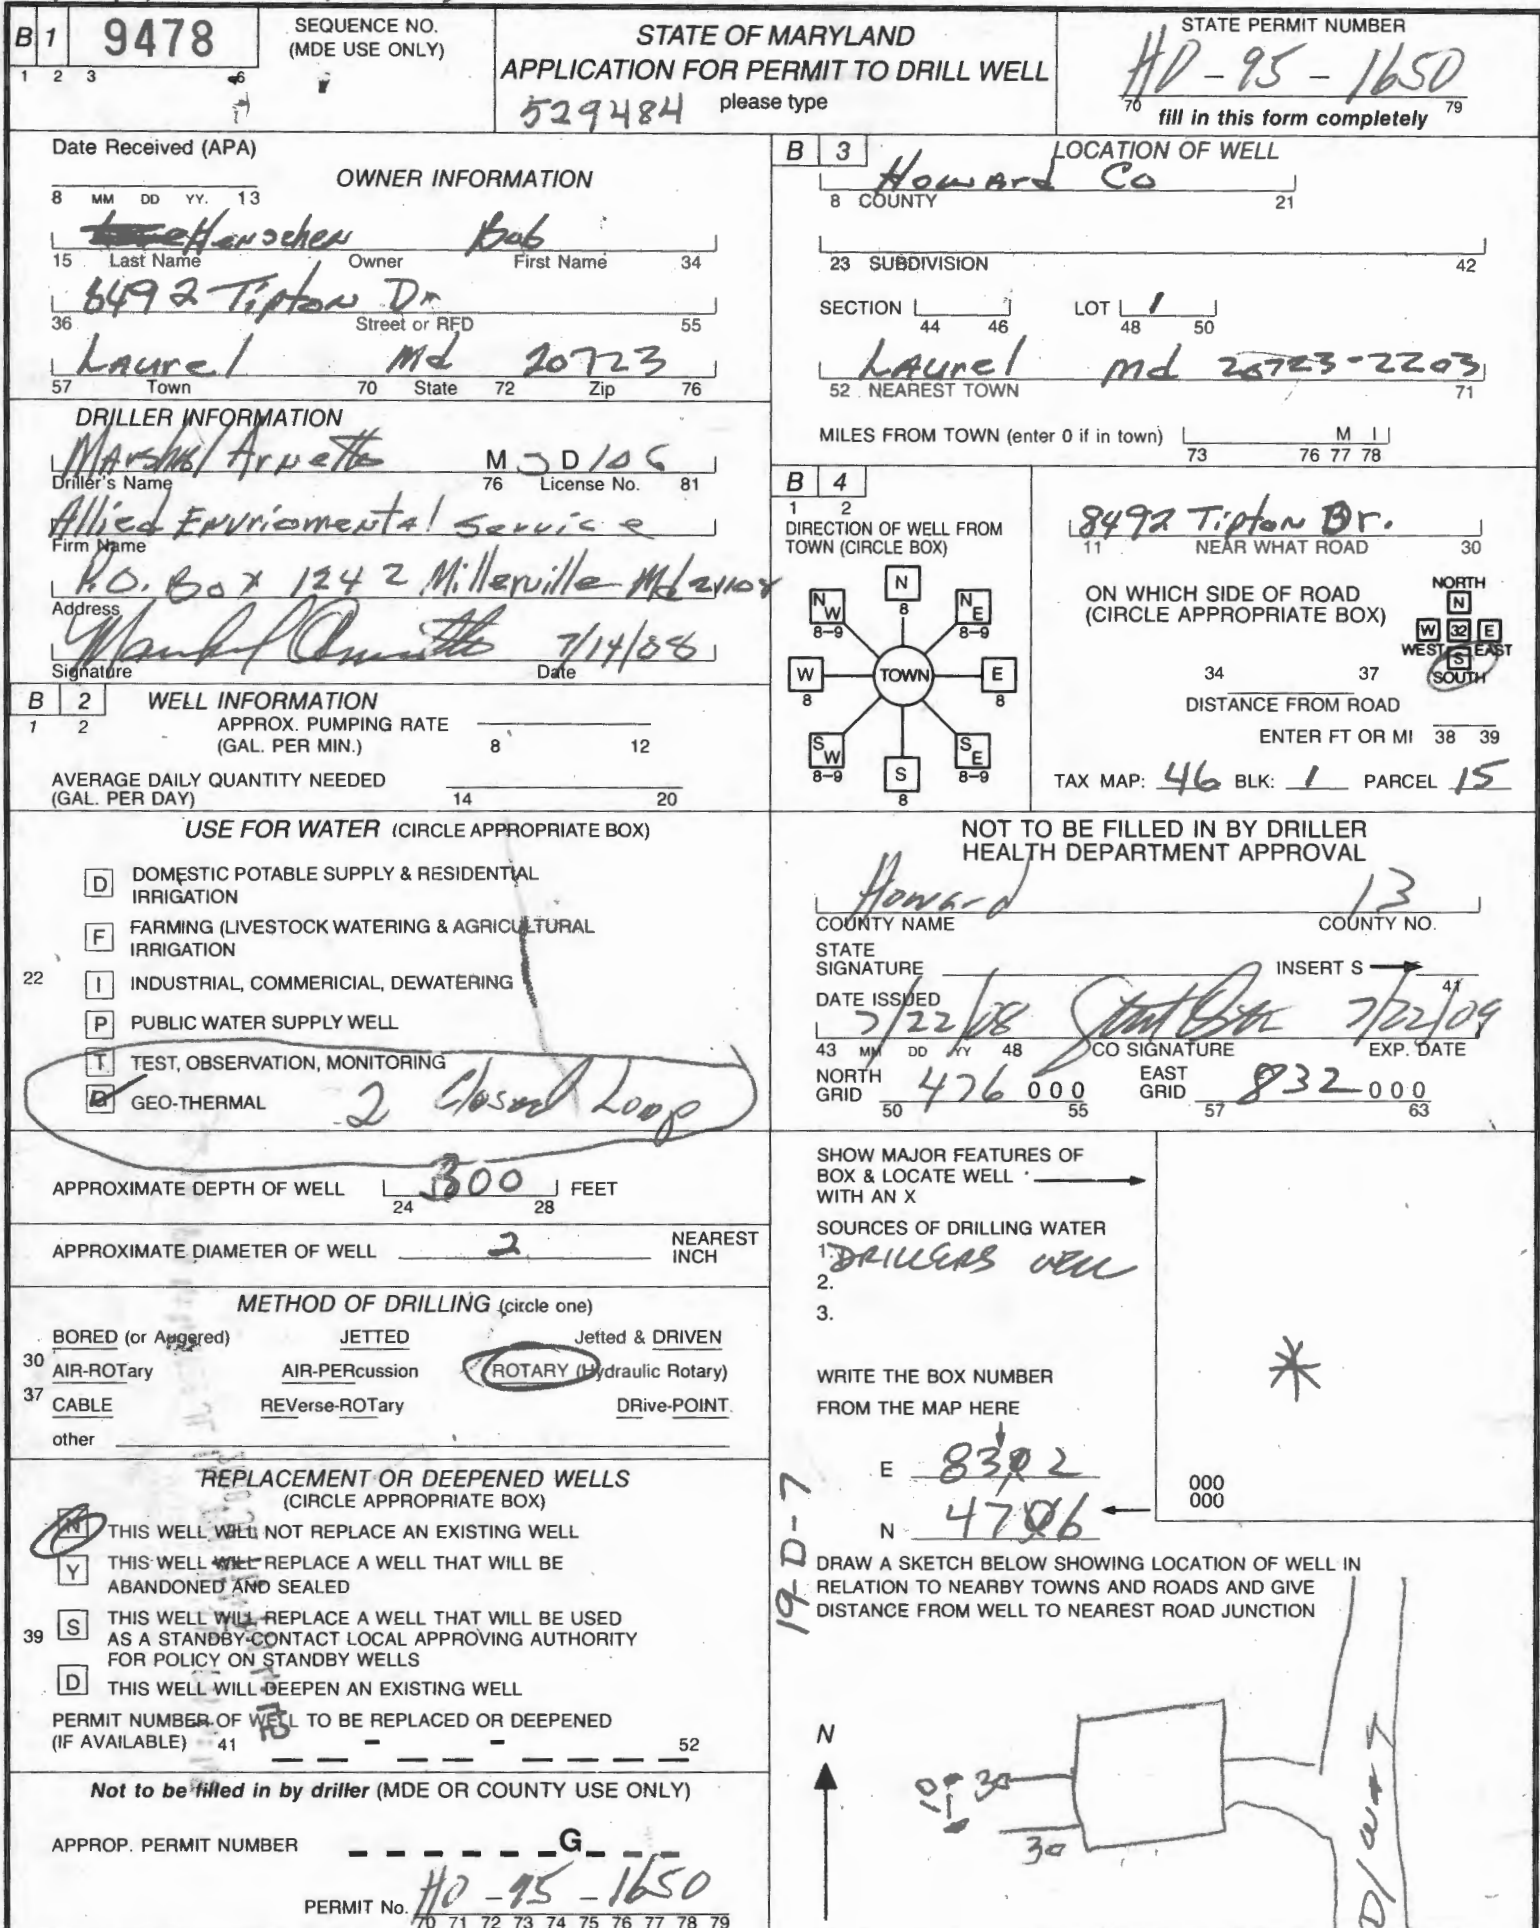 B 1 9478 SEQUENCE NO.
(MDE USE ONLY)
1 2 3 6
STATE OF MARYLAND
APPLICATION FOR PERMIT TO DRILL WELL
529484 please type
STATE PERMIT NUMBER
HO-95-1650
70 79
fill in this form completely
Date Received (APA)
8 MM DD YY. 13
OWNER INFORMATION
Henschen Bob
15 Last Name Owner First Name 34
8492 Tipton Dr
36 Street or RFD 55
Laurel Md 20723
57 Town 70 State 72 Zip 76
DRILLER INFORMATION
Marshal Arnette M D 106
Driller's Name 76 License No. 81
Allied Envriomental Service
Firm Name
P.O. Box 1242 Millerville Md 21108
Address
7/14/08
Signature Date
B 2 WELL INFORMATION
1 2
APPROX. PUMPING RATE
(GAL. PER MIN.) 8 12
AVERAGE DAILY QUANTITY NEEDED
(GAL. PER DAY) 14 20
USE FOR WATER (CIRCLE APPROPRIATE BOX)
D DOMESTIC POTABLE SUPPLY & RESIDENTIAL
IRRIGATION
F FARMING (LIVESTOCK WATERING & AGRICULTURAL
IRRIGATION
22 I INDUSTRIAL, COMMERICIAL, DEWATERING
P PUBLIC WATER SUPPLY WELL
T TEST, OBSERVATION, MONITORING
G GEO-THERMAL 2 Closed Loop
APPROXIMATE DEPTH OF WELL 300 FEET
24 28
APPROXIMATE DIAMETER OF WELL 2 NEAREST
INCH
METHOD OF DRILLING (circle one)
BORED (or Augered) JETTED Jetted & DRIVEN
30 AIR-ROTary AIR-PERcussion ROTARY (Hydraulic Rotary)
37 CABLE REVerse-ROTary DRive-POINT.
other
REPLACEMENT OR DEEPENED WELLS
(CIRCLE APPROPRIATE BOX)
N THIS WELL WILL NOT REPLACE AN EXISTING WELL
Y THIS WELL WILL REPLACE A WELL THAT WILL BE
ABANDONED AND SEALED
39 S THIS WELL WILL REPLACE A WELL THAT WILL BE USED
AS A STANDBY-CONTACT LOCAL APPROVING AUTHORITY
FOR POLICY ON STANDBY WELLS
D THIS WELL WILL DEEPEN AN EXISTING WELL
PERMIT NUMBER OF WELL TO BE REPLACED OR DEEPENED
(IF AVAILABLE) 41 - - 52
Not to be filled in by driller (MDE OR COUNTY USE ONLY)
APPROP. PERMIT NUMBER G
PERMIT No. HO-95-1650
70 71 72 73 74 75 76 77 78 79
B 3 LOCATION OF WELL
Howard Co
8 COUNTY 21
23 SUBDIVISION 42
SECTION LOT 1
44 46 48 50
Laurel Md 20723-2203
52 NEAREST TOWN 71
MILES FROM TOWN (enter 0 if in town) M I
73 76 77 78
B 4
1 2
DIRECTION OF WELL FROM
TOWN (CIRCLE BOX)
N
8
NW NE
8-9 8-9
W TOWN E
8 8
SW SE
8-9 8-9
S
8
8492 Tipton Dr.
11 NEAR WHAT ROAD 30
ON WHICH SIDE OF ROAD
(CIRCLE APPROPRIATE BOX)
NORTH
N
W 32 E
WEST EAST
S
SOUTH
34 37
DISTANCE FROM ROAD
ENTER FT OR MI 38 39
TAX MAP: 46 BLK: 1 PARCEL 15
NOT TO BE FILLED IN BY DRILLER
HEALTH DEPARTMENT APPROVAL
Howard 13
COUNTY NAME COUNTY NO.
STATE
SIGNATURE INSERT S
41
DATE ISSUED
7/22/08 7/22/09
43 MM DD YY 48 CO SIGNATURE EXP. DATE
NORTH
GRID 476 000
50 55
EAST
GRID 832 000
57 63
SHOW MAJOR FEATURES OF
BOX & LOCATE WELL
WITH AN X
SOURCES OF DRILLING WATER
1. DRILLERS WELL
2.
3.
WRITE THE BOX NUMBER
FROM THE MAP HERE
E 8302
N 4706
000
000
19-D-7
DRAW A SKETCH BELOW SHOWING LOCATION OF WELL IN
RELATION TO NEARBY TOWNS AND ROADS AND GIVE
DISTANCE FROM WELL TO NEAREST ROAD JUNCTION
N
10 30
30